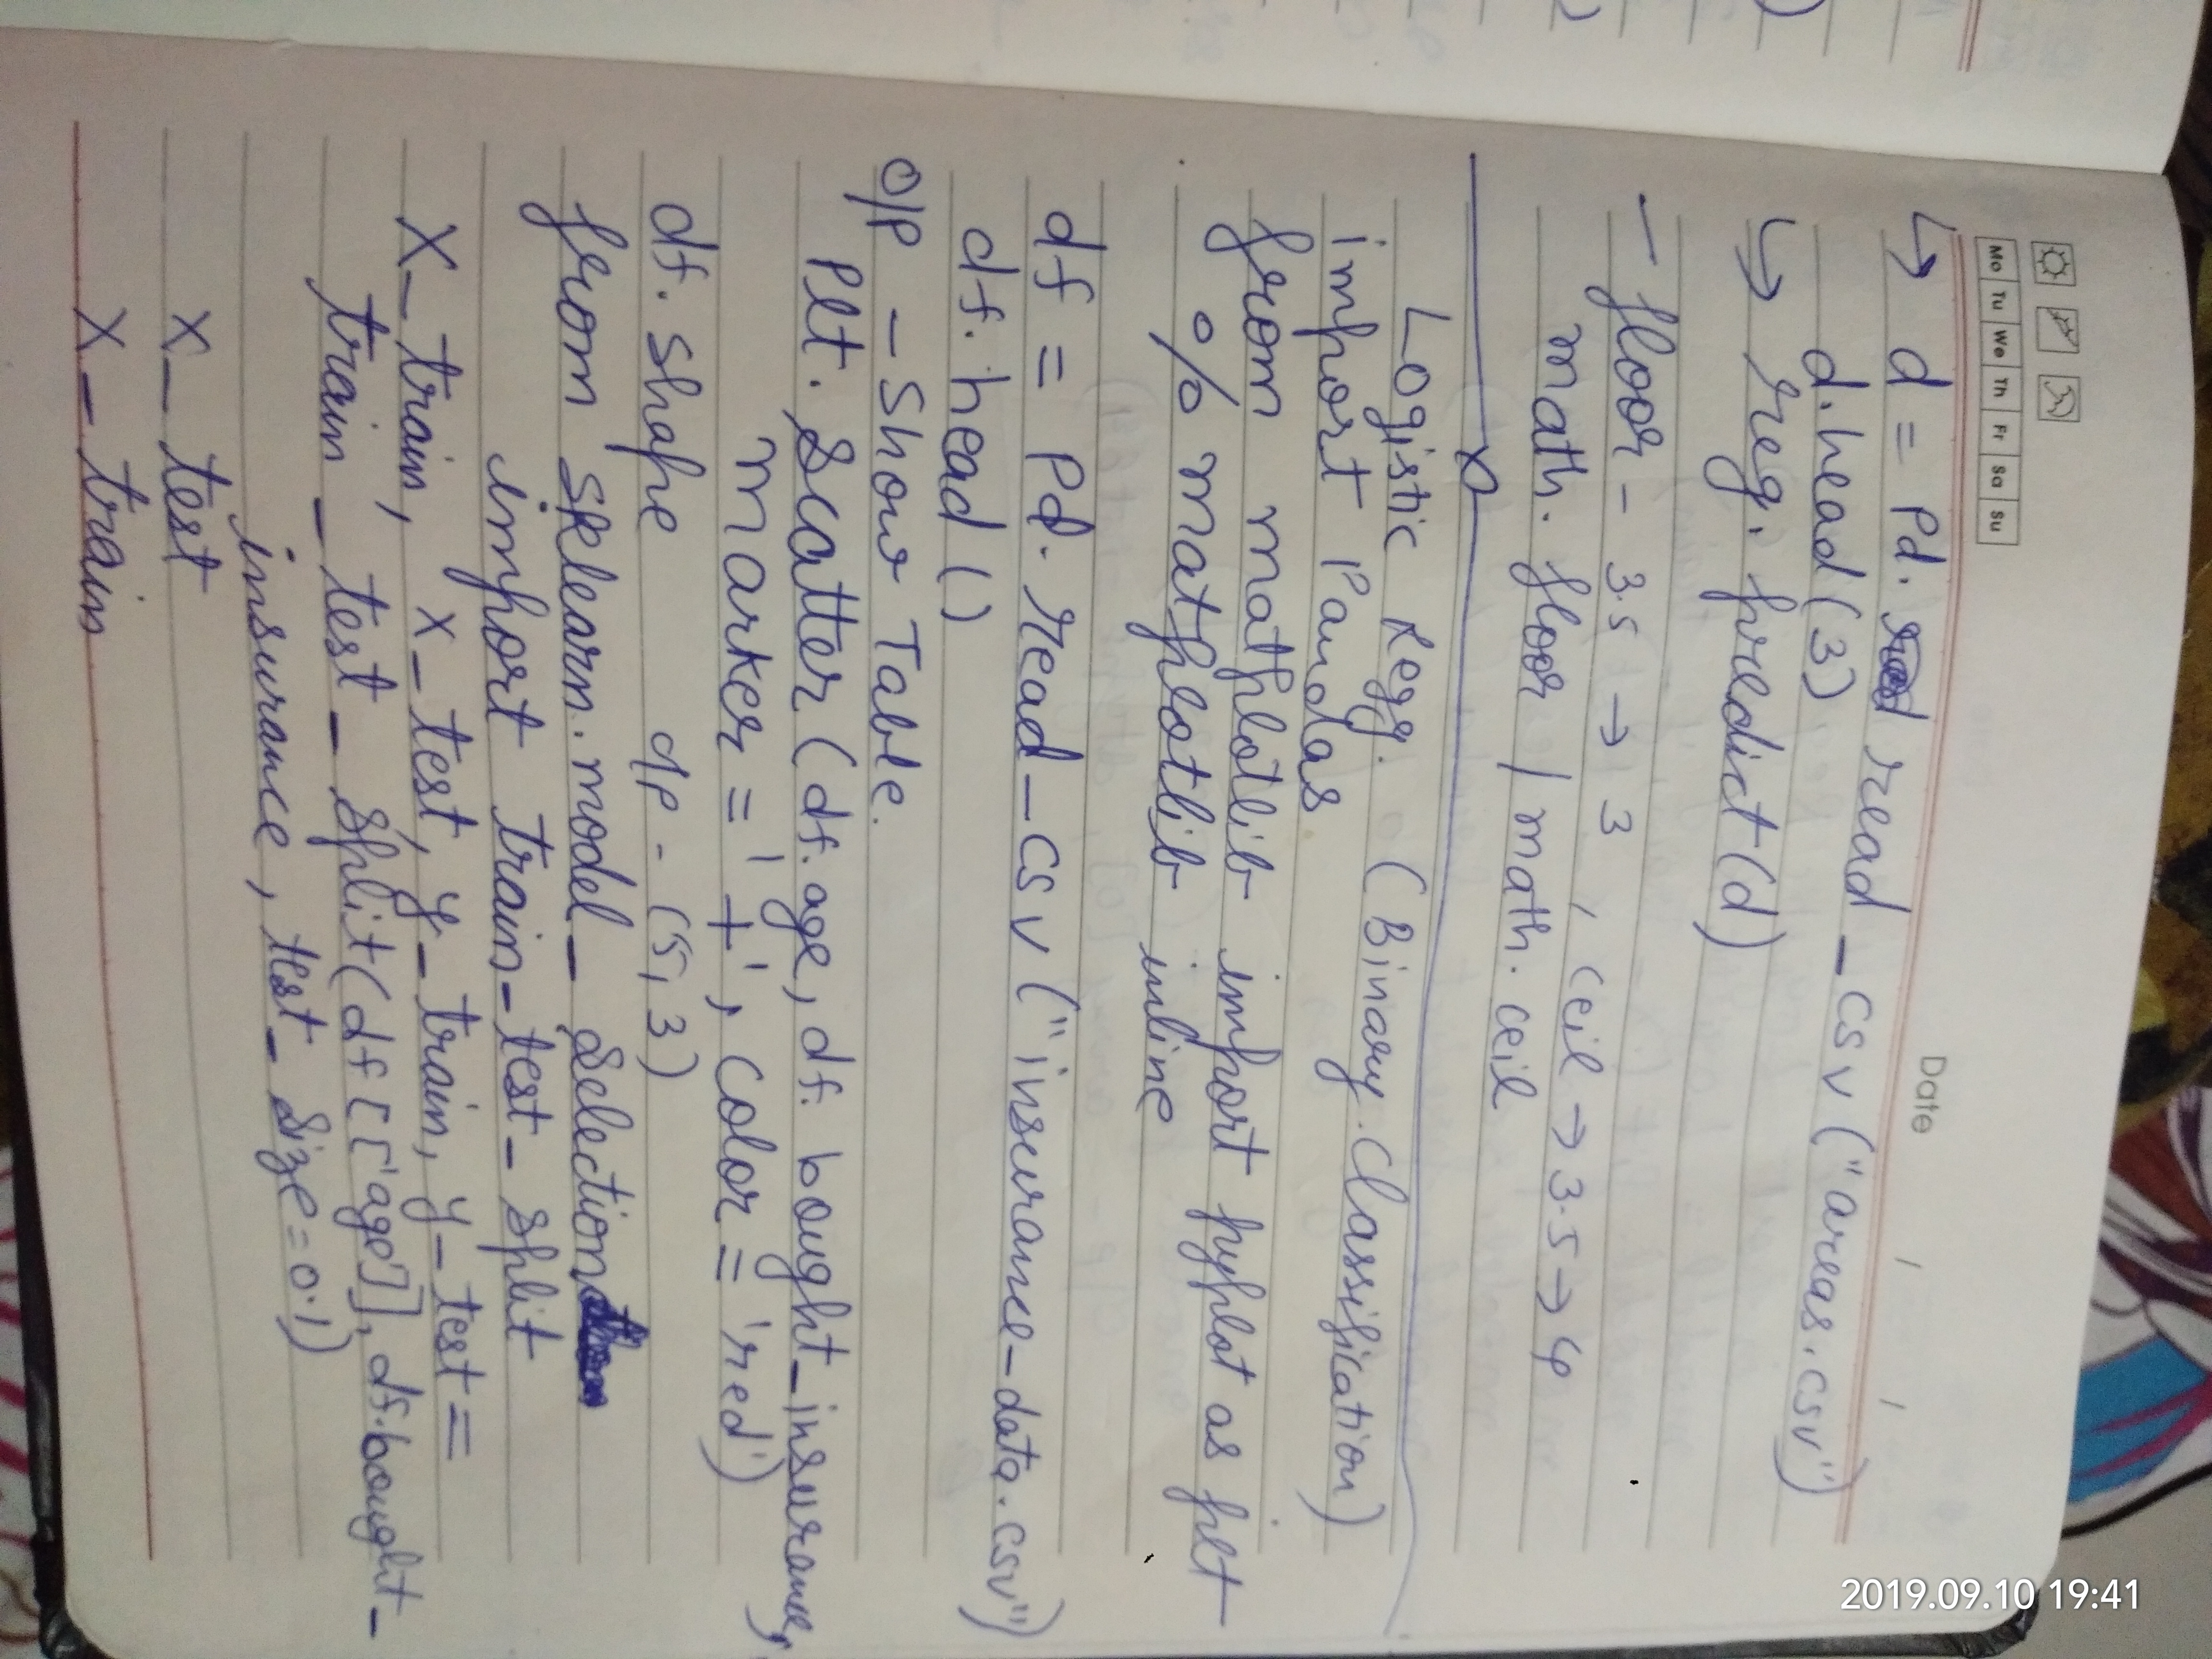 Mo Tu We Th Fr Sa Su
Date / /
↳ d = Pd. read_csv ("areas.csv")
d.head (3)
↳ reg. predict (d)
- floor - 3.5 → 3 , ceil → 3.5 → 4
math. floor | math. ceil
x
Logistic Regg. (Binary Classification)
import Pandas
from matplotlib import pyplot as plt
% matplotlib inline
df = Pd. read_csv ("insurance_data.csv")
df. head ()
O/P - Show Table.
Plt. Scatter (df. age, df. bought_insurance,
marker = '+', color = 'red')
df. shape o/p - (5, 3)
from sklearn. model_ selection
import train_test_ split
X_train, x_test, y_train, y_test =
train_test_split (df [['age']], df.bought_
insurance, test_size = 0.1)
x_test
x_train
2019.09.10 19:41